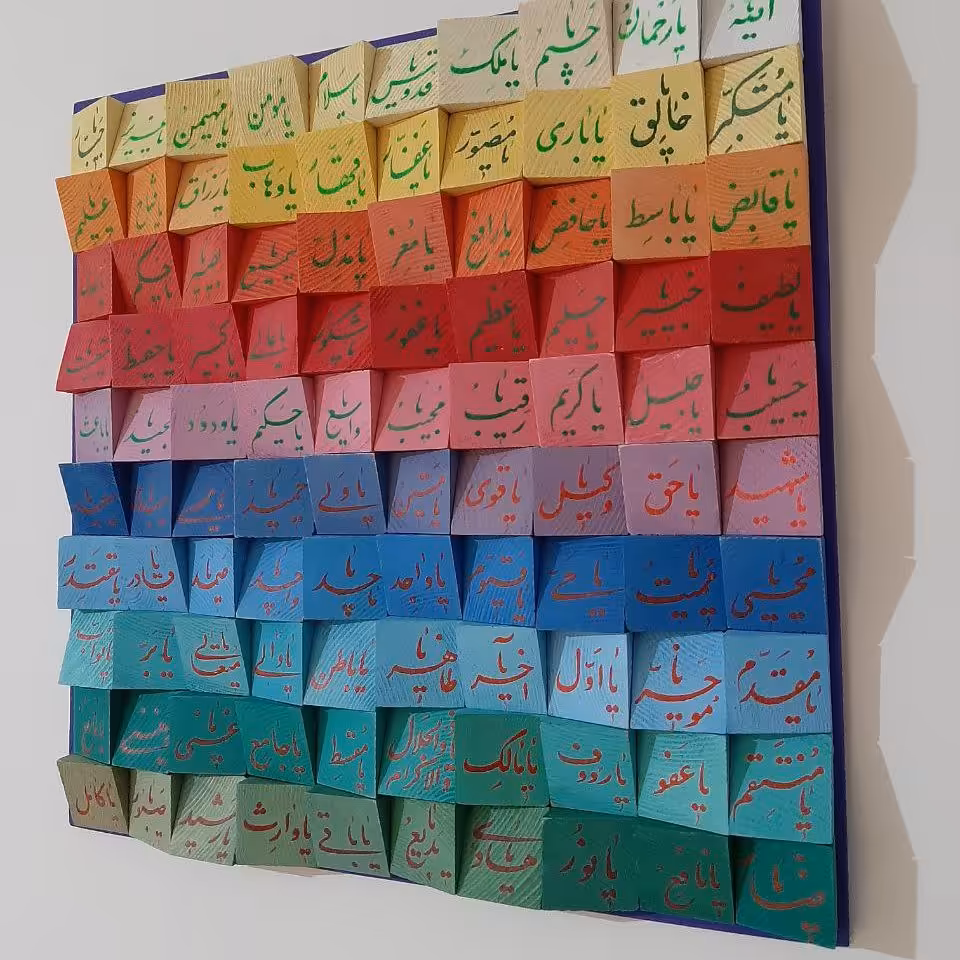 یارَحْمانُ یا رَحیمُ یا مَلِکُ یا قدوس یا سلام یا مؤمن یا مهیمن یا عزیز یا جبار
یا مُتَکَبِّرُ یا خالِق یا باری یا مُصَوِّر یا غفار یا قهار یا وهاب یا رزاق یا فتاح یا علیم
یا قابِضُ یا باسِط یا خافِض یا رافع یا مُعِزّ یا مذل یا سمیع یا بصیر یا حکم
یا لطیف یا خبیر یا حلیم یا عظیم یا غفور یا شکور یا عالی یا کبیر یا حفیظ یا مقیت
یا حسیب یا جلیل یا کریم یا رقیب یا مجیب یا واسع یا حکیم یا ودود یا مجید یا باعث
یا شهید یا حق یا وکیل یا قوی یا متین یا ولی یا حمید
یا مُحیی یا مُمیت یا حی یا قیّوم یا واجد یا ماجد یا واحد یا صمد یا قادر یا مقتدر
یا مُقَدِّم یا موخر یا اوّل یا آخر یا ظاهر یا باطن یا والی یا متعالی یا بر یا تواب
یا منتقم یا عفو یا رووف یا مالک یا ذوالجلال والاکرام یا مقسط یا جامع یا غنی یا مغنی
یا ضار یا نافع یا نور یا هادی یا بدیع یا باقی یا وارث یا رشید یا صبور یا کامل